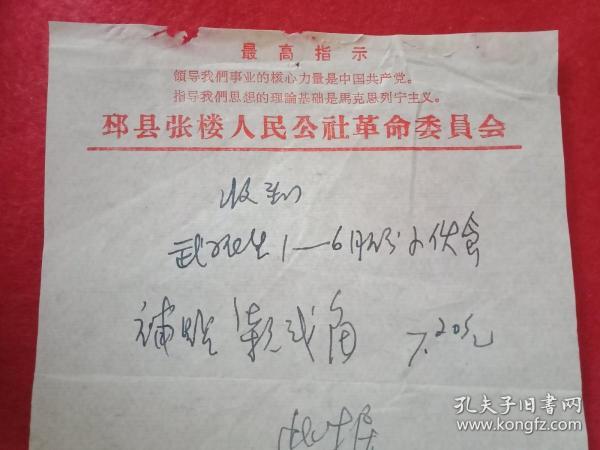 最高指示
領导我們事业的核心力量是中国共产党。
指导我們思想的理論基础是馬克思列宁主义。
邳县张楼人民公社革命委員会
收到
武 生1—6月份 伙食
补贴 柒 贰角 7.20元
孔夫子旧书网
www.kongfz.com